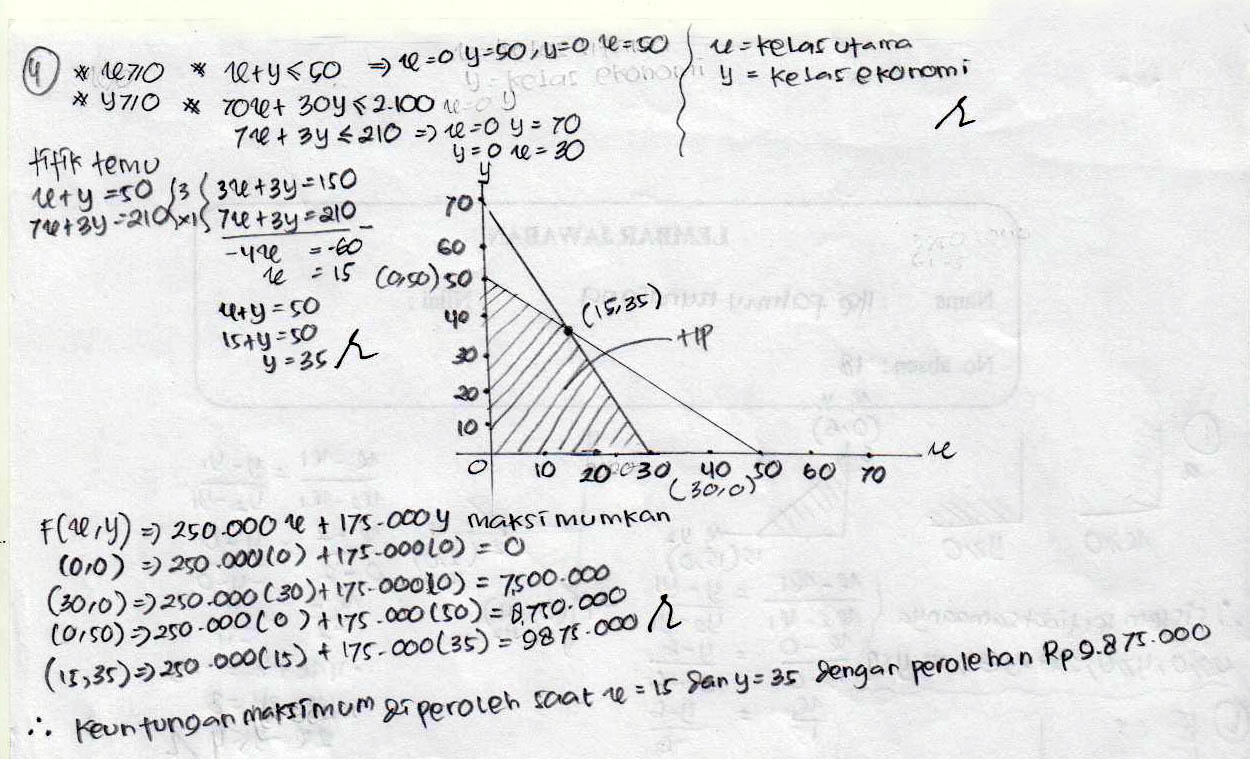 4
* x≥0 * x+y≤50 ⇒ x=0 y=50, y=0 x=50
* y≥0 * 70x + 30y ≤ 2.100
7x + 3y ≤ 210 ⇒ x=0 y=70
y=0 x=30
x = kelas utama
y = kelas ekonomi
titik temu
x+y=50 |3| 3x+3y=150
7x+3y=210 |x1| 7x+3y=210 -
-4x = -60
x = 15
x+y=50
15+y=50
y=35
y
70
60
(0,50) 50
40
30
20
10
0 10 20 30 40 50 60 70 x
(15,35)
HP
(30,0)
F(x,y) ⇒ 250.000 x + 175.000y maksimumkan
(0,0) ⇒ 250.000(0) + 175.000(0) = 0
(30,0) ⇒ 250.000(30) + 175.000(0) = 7.500.000
(0,50) ⇒ 250.000(0) + 175.000(50) = 8.750.000
(15,35) ⇒ 250.000(15) + 175.000(35) = 9875.000
∴ Keuntungan maksimum diperoleh saat x = 15 dan y = 35 dengan perolehan Rp9.875.000